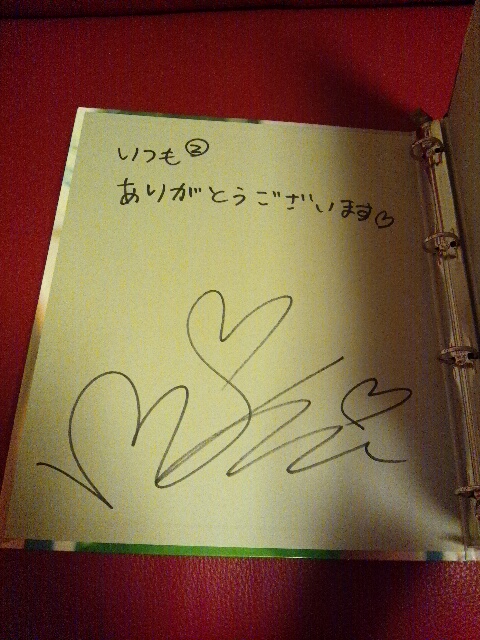 いつも②
ありがとうございます♡